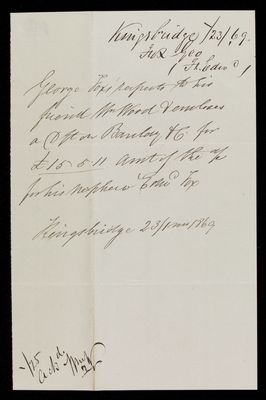 Kingsbridge 1/23/69.
Fox Geo
George Fox's respects to his
friend Wm Wood & encloses
a Dft on Barclay & C for
£15 5 11 amt of the a/c
for his nephew Edwd Fox
Kingsbridge 23/1mo/1869
1/25
Ackd